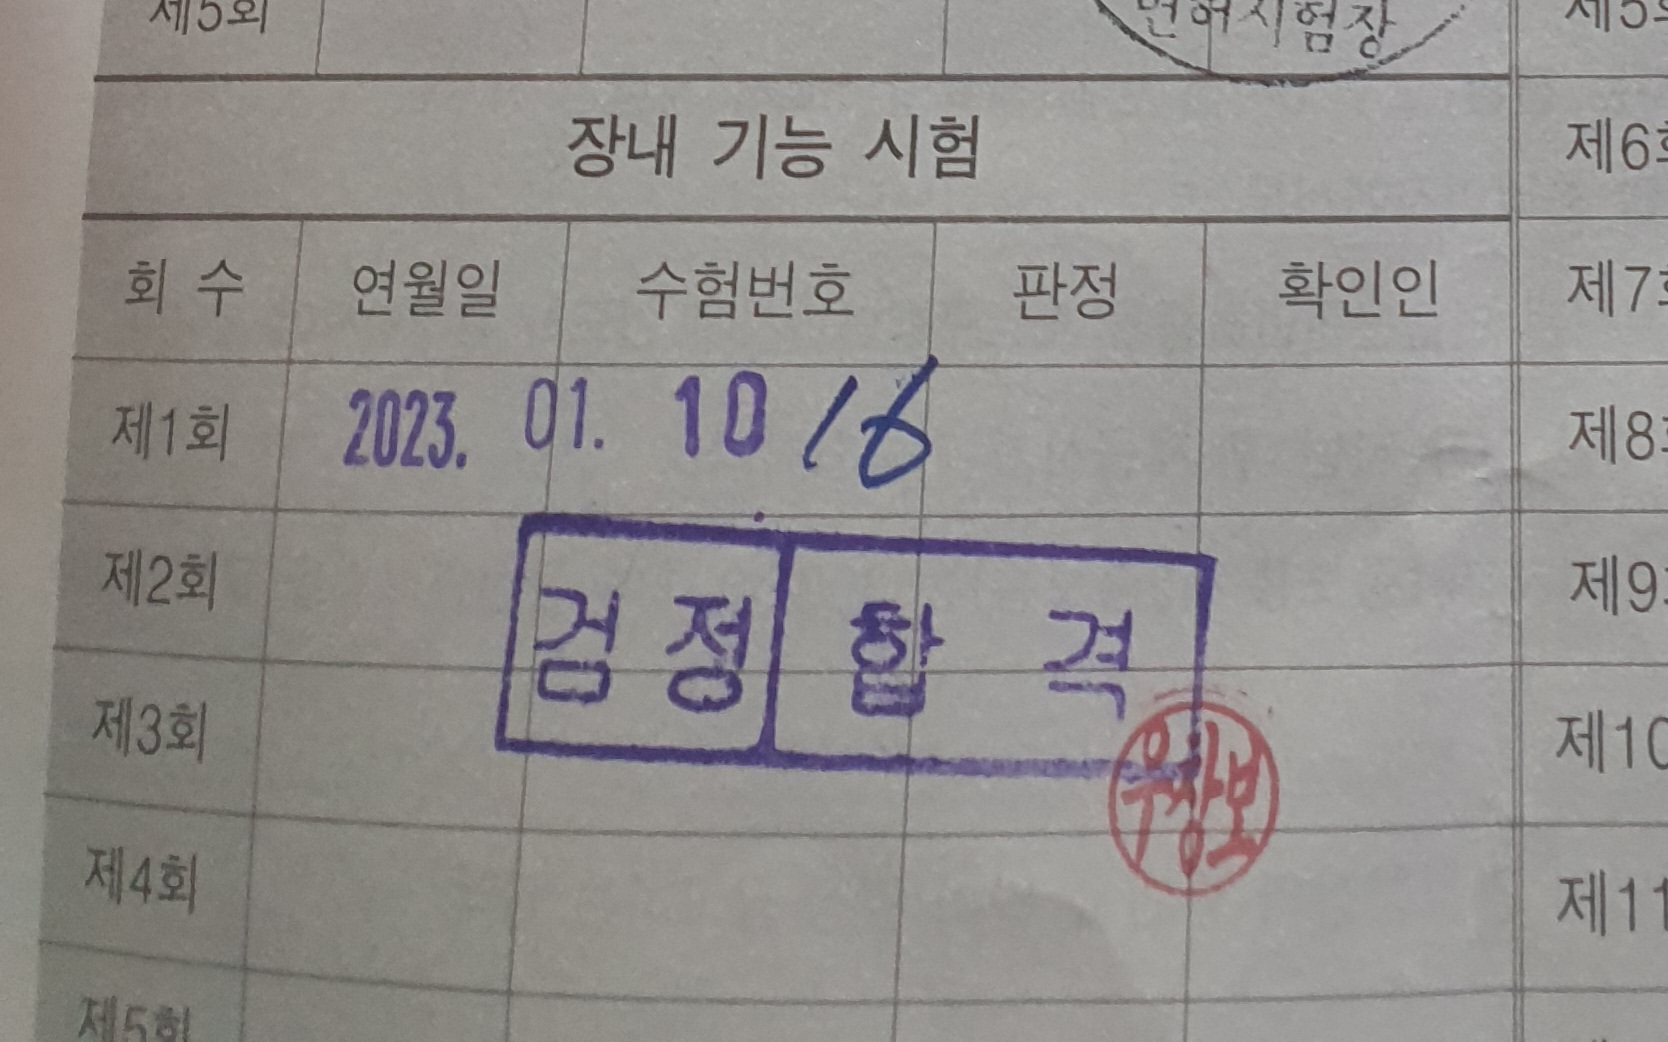 제5회
면허시험장
제5회
장내 기능 시험
제6회
회 수 연월일 수험번호 판정 확인인
제7회
제1회 2023. 01. 10 16
제8회
제2회
제9회
검정 합격
제3회
우창보
제10
제4회
제11
제5회